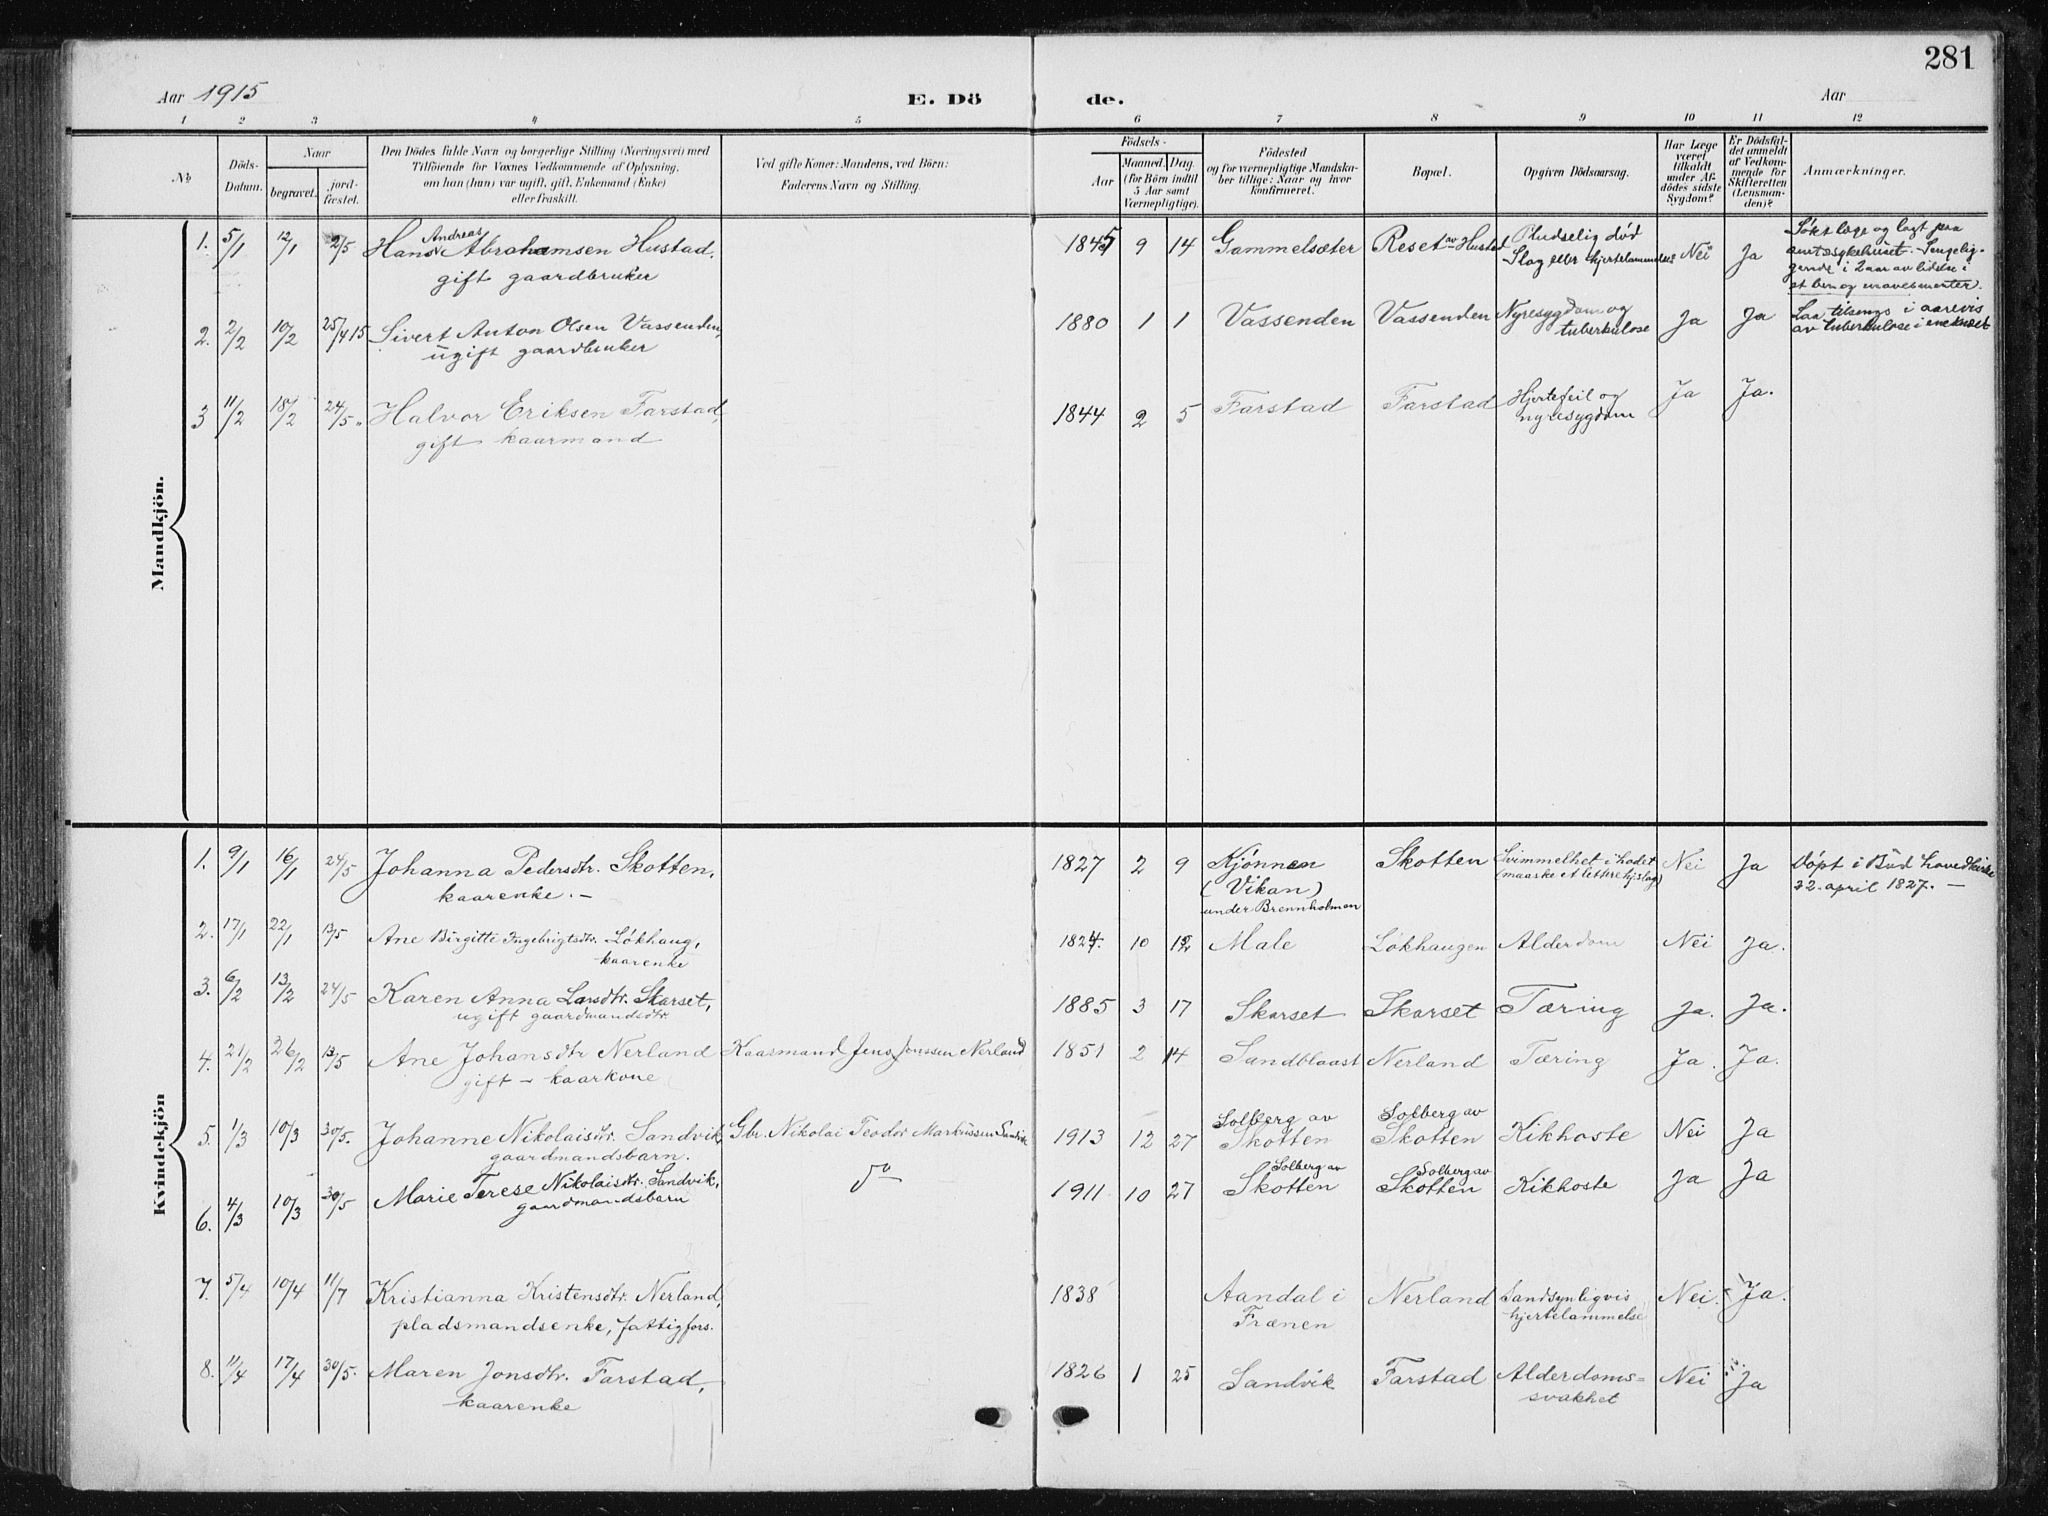 281
Aar 1915
E. Dö
de.
Aar
1 2 3 4 5 6 7 8 9 10 11 12
No
Döds-Datum.
Naar
begravet.
jordfæstet.
Den Dödes fulde Navn og borgerlige Stilling (Næringsvei) med
Tilföiende for Voxnes Vedkommende af Oplysning,
om han (hun) var ugift, gift, Enkemand (Enke)
eller fraskilt.
Ved gifte Koner: Mandens, ved Börn:
Faderens Navn og Stilling.
Födsels-
Aar
Maaned. Dag.
(for Börn indtil
5 Aar samt
Værnepligtige).
Födested
og for værnepligtige Mandskaber tillige: Naar og hvor
konfirmeret.
Bopæl.
Opgiven Dödsaarsag.
Har Læge
været
tilkaldt
under Afdödes sidste
Sygdom?
Er Dödsfaldet anmeldt
af Vedkommende for
Skifteretten
(Lensmanden)?
Anmærkninger.
Mandkjön.
1. 5/1 12/1 2/5 Hans Andreas Abrahamsen Hustad, 1845 9 14 Gammelsæter Reset av Hustad Pludselig död Nei Ja Søkt læge og lagt paa
gift gaardbruker Slag eller hjertelammelse amtssykehuset. Sengelig-
gende i 2 aar av lidelse i
et ben og mavesmerter.
2. 2/2 10/2 25/4 15 Sivert Anton Olsen Vassenden, 1880 1 1 Vassenden Vassenden Nyresygdom og Ja Ja Laa tilsengs i aarevis
ugift gaardbruker tuberkulose av tuberkulose i ene knæet
3 11/2 18/2 24/5. Halvor Eriksen Farstad, 1844 2 5 Farstad Farstad Hjertefeil og Ja Ja.
gift kaarmand nyresygdom
Kvindekjön
1. 9/1 16/1 24/5 Johanna Pedersdtr. Skotten, 1827 2 9 Kjønnen Skotten Svimmelhet i hodet Nei Ja Døpt i Bud hovedkirke
kaarenke. – (Vikan) (maaske et lettere hj.slag) 22. april 1827. –
under Brennholmen
2. 17/1 22/1 13/5 Ane Birgitte Ingebrigtsdtr. Løkhaug, 1824. 10 Male Løkhaugen Alderdom Nei Ja.
kaarenke
3. 6/2 13/2 24/5 Karen Anna Larsdtr. Skarset, 1885 3 17 Skarset Skarset Tæring Ja. Ja.
ugift gaardmandsdtr.
4. 21/2 26/2 13/5 Ane Johansdtr Nerland Kaarmand Jens Jenssen Nerland 1851 2 14 Sandblaast Nerland Tæring Ja. Ja.
gift – kaarkone
5. 1/3 10/3 30/5. Johanne Nikolaisdtr. Sandvik, Gbr. Nikolai Teodor Markussen Sandvik 1913 12 27 Solberg av Skotten Solberg av Skotten Kikhoste Nei Ja
gaardmandsbarn.
6. 4/3 10/3 30/5 Marie Terese Nikolaisdtr. Sandvik, do 1911 10 27 Solberg av Skotten Solberg av Skotten Kikhoste Ja Ja
gaardmandsbarn
7. 5/4 10/4 11/7 Kristianna Kristensdtr. Nerland, 1838 Aandal i Nerland Sandsynligvis Nei. Ja.
pladsmandsenke, fattigfors. Frænen hjertelammelse
8. 11/4 17/4 30/5. Maren Jonsdtr. Farstad, 1826 1 25 Sandvik Farstad Alderdoms= Nei Ja
kaarenke svakhet